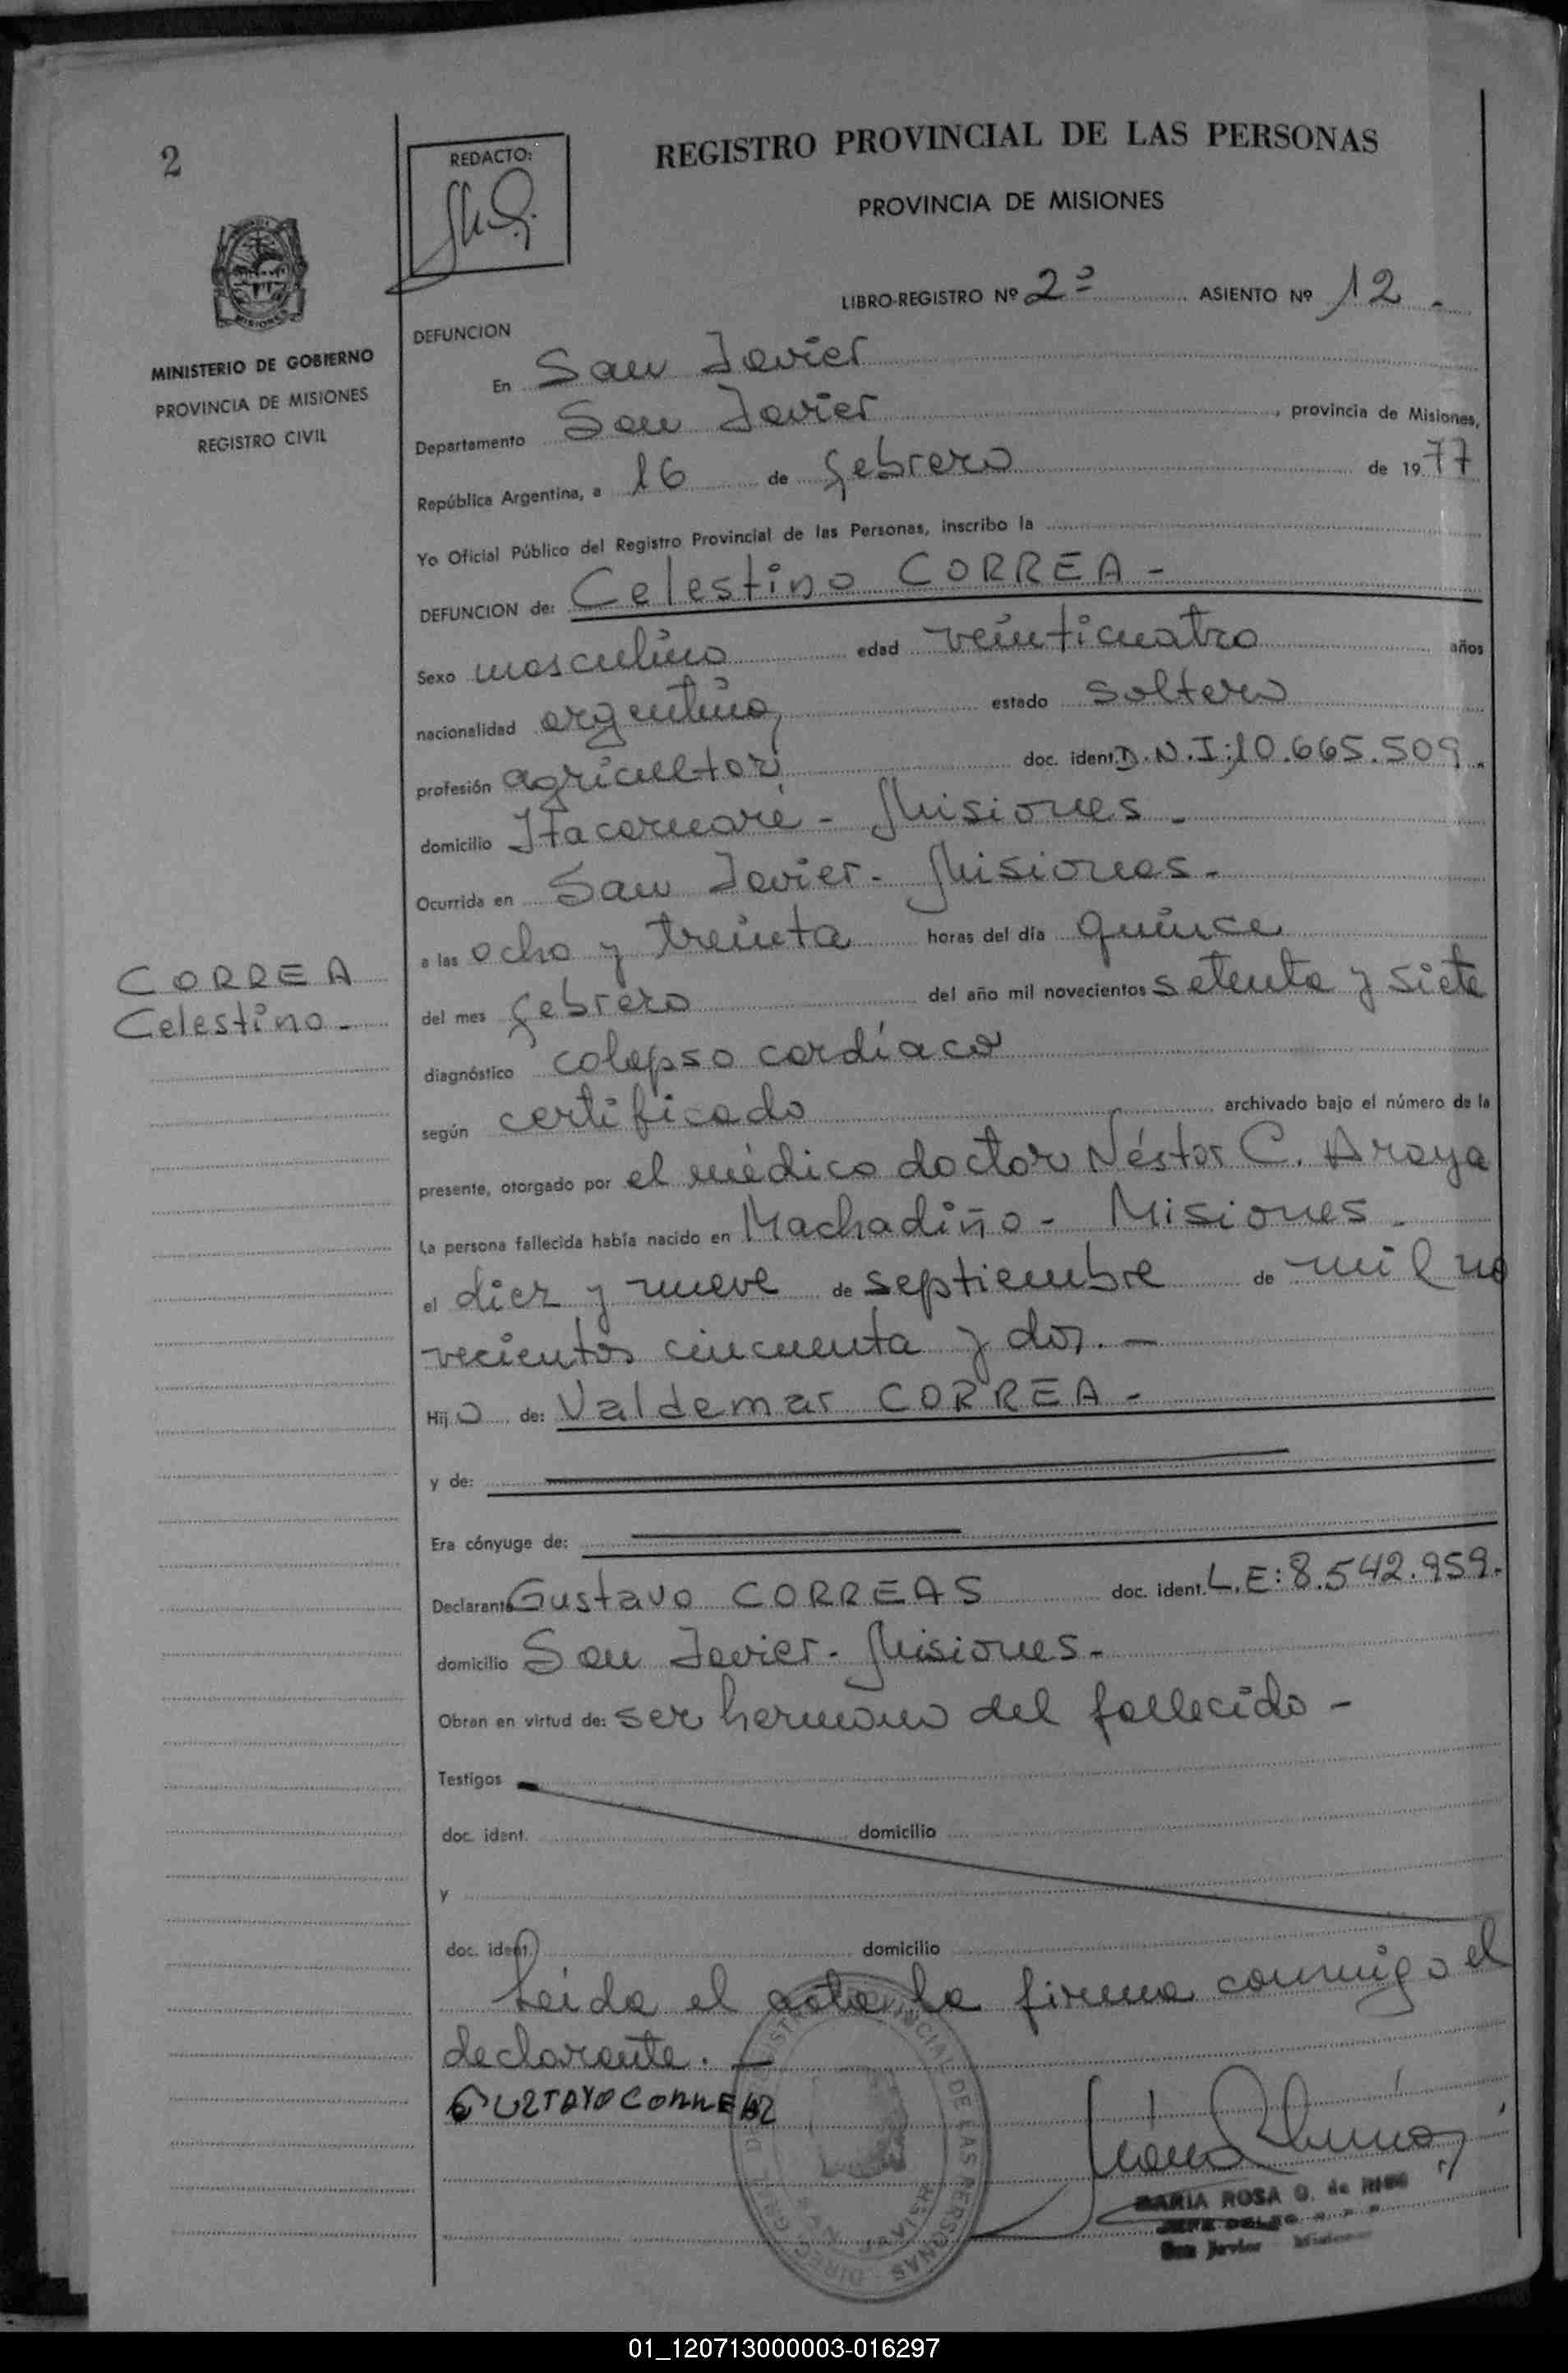 2
REDACTO:
REGISTRO PROVINCIAL DE LAS PERSONAS
PROVINCIA DE MISIONES
LIBRO-REGISTRO Nº 2º ASIENTO Nº 12.
MISIONES
MINISTERIO DE GOBIERNO
PROVINCIA DE MISIONES
REGISTRO CIVIL
DEFUNCION
En San Javier
Departamento San Javier, provincia de Misiones,
República Argentina, a 16 de febrero de 1977
Yo Oficial Público del Registro Provincial de las Personas, inscribo la
DEFUNCION de: Celestino CORREA -
Sexo masculino edad veinticuatro años
nacionalidad argentino, estado soltero
profesión agricultor doc. ident. D.N.I: 10.665.509.
domicilio Itacaruaré - Misiones -
Ocurrida en San Javier - Misiones -
a las ocho y treinta horas del día quince
CORREA
Celestino -
del mes febrero del año mil novecientos setenta y siete
diagnóstico colapso cardíaco
según certificado archivado bajo el número de la
presente, otorgado por el médico doctor Néstor C. Araya
La persona fallecida había nacido en Machadiño - Misiones -
el diez y nueve de septiembre de mil no
vecientos cincuenta y dos. -
Hijo de: Valdemar CORREA -
y de:
Era cónyuge de:
Declarante Gustavo CORREAS doc. ident. L.E: 8.542.959.
domicilio San Javier - Misiones -
Obran en virtud de: ser hermano del fallecido -
Testigos
doc. ident. domicilio
y
doc. ident. domicilio
Leída el acta la firma conmigo el
declarante. -
GUSTAVO CORREAS
REGISTRO PROVINCIAL DE LAS PERSONAS
MARIA ROSA
San Javier Misiones
01_120713000003-016297